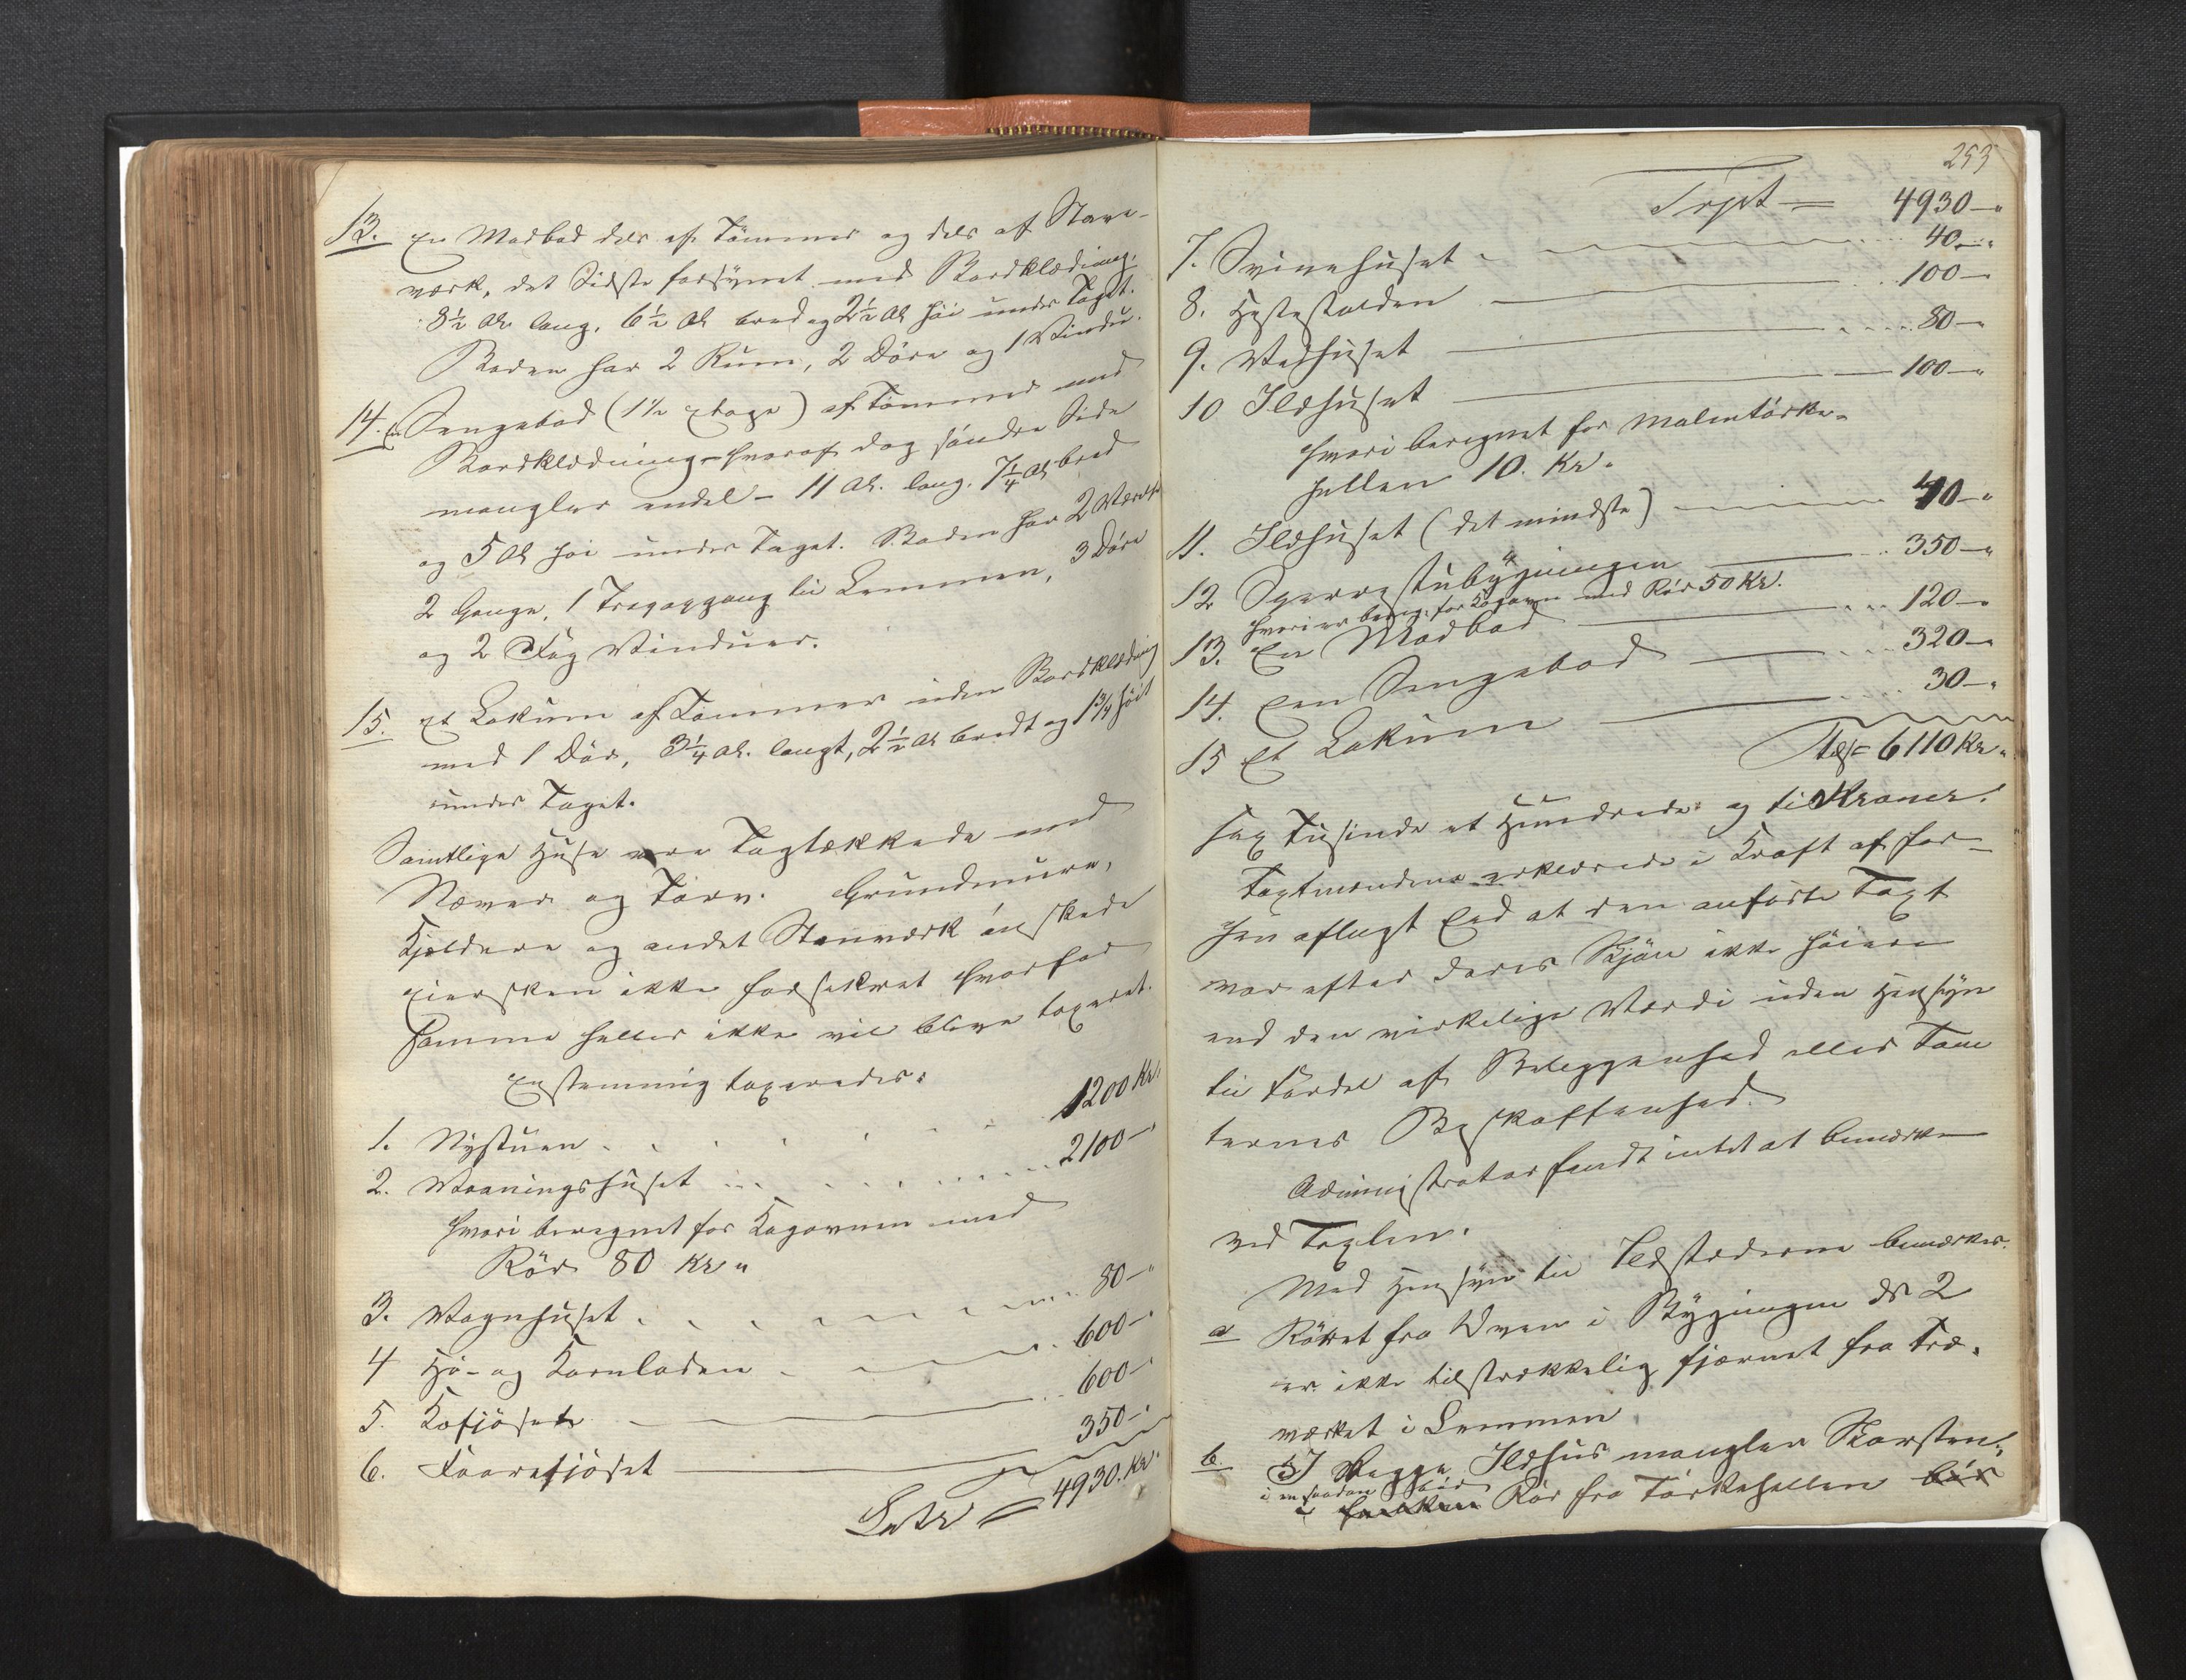 13. En Madbod dels af Tømmer og dels af Stav-
værk, det Sidste forsynet med Bordklædning,
8½ Al. lang, 6½ Al bred og 2½ Al høi under Taget.
Boden har 2 Rum, 2 Døre og 1 Vindu.
14. En Sengebod (1½ Etage) af Tømmer med
Bordklædning – hvoraf dog søndre Side
mangler endel – 11 Al. lang, 7¼ Al bred
og 5 Al høi under Taget. Boden har 2 Værelser
2 Gange, 1 Trapopgang til Lemmen, 3 Døre
og 2 Fag Vinduer.
15. Et Lokum af Tømmer uden Bordklædning
med 1 Dør, 3¼ Al. langt, 2½ Al bredt og 1¾ høit
under Taget.
Samtlige Huse ere Tagtækkede med
Næver og Tørv. Grundmure,
Kjeldere og andet Stenværk ønskede
Eiersken ikke forsikret hvorfor
samme heller ikke vil blive taxeret.
Enstemmig taxeredes:
1. Nystuen 1200 Kr.
2. Vaaningshuset 2100 –
hvori beregnet for Kogovnen med
Rør 80 Kr.
3. Vognhuset 80 –
4 Hø- og Kornladen 600 –
5. Kofjøset 600 –
6. Faarefjøset 350 –
Latr = 4930. Kr.
253
Trpt = 4930 –
7. Svinehuset 40 –
8. Hestestalden 100 –
9. Vedhuset 80 –
10 Ildhuset 100 –
hvori beregnet for Malmtørke-
hellen 10. Kr.
11. Ildhuset (det mindste) 40 –
12 Sperrestubygningen 350 –
hvori er bereg. for Kogovn med Rør 50 Kr.
13. En Madbod 120 –
14. Een Sengebod 320 –
15 Et Lokum 30 –
6110 Kr.
sex Tusinde et Hundrede og ti Kroner.
Taxtmændene erklærede i Kraft af for-
hen aflagt Eed at den anførte Taxt
var efter deres Skjøn ikke høiere
end den virkelige Værdi uden Hensyn
til Fordel af Beliggenhed eller Tom
ternes Beskaffenhed.
Administrator fandt intet at bemærke
ved Taxten.
Med Hensyn til Ildstederne bemærkes:
a Røret fra Ovnen i Bygningen № 2
er ikke tilstrækkelig fjærnet fra Træ-
værket i Lemmen
b. I Begge Ildhus mangler Skorsten,
i en saadan bør
Rør fra Tørkehellen bør